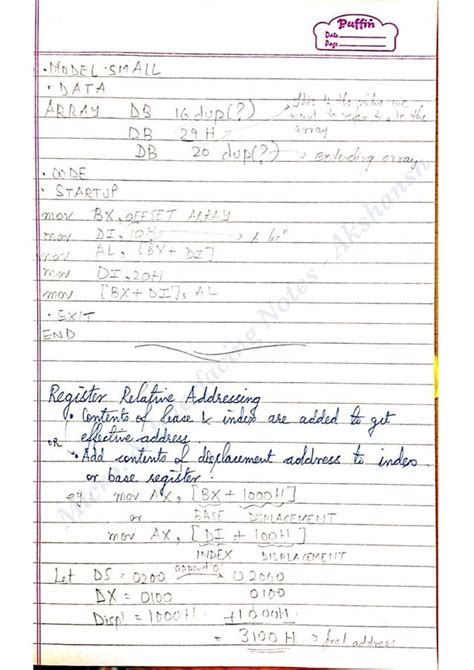 Puffin
Date
Page
.MODEL SMALL
.DATA
ARRAY DB 16 dup(?)
DB 29H
DB 20 dup(?) → extending array
This is the
want to refer to in the
array
.CODE
.STARTUP
mov BX, OFFSET ARRAY
mov DI, 10H
mov AL, [BX + DI]
mov DI, 20H
mov [BX + DI], AL
.EXIT
END
Register Relative Addressing
• Contents of base & index are added to get
effective address
OR • Add contents of displacement address to index
or base register :
eg mov AX, [BX + 1000H]
or BASE DISPLACEMENT
mov AX, [DI + 100H]
INDEX DISPLACEMENT
Let DS = 0200 append 0 → 02000
DX = 0100 0100
Displ = 1000H +1000H
= 3100 H → final address
Interfacing Notes - Akshansh